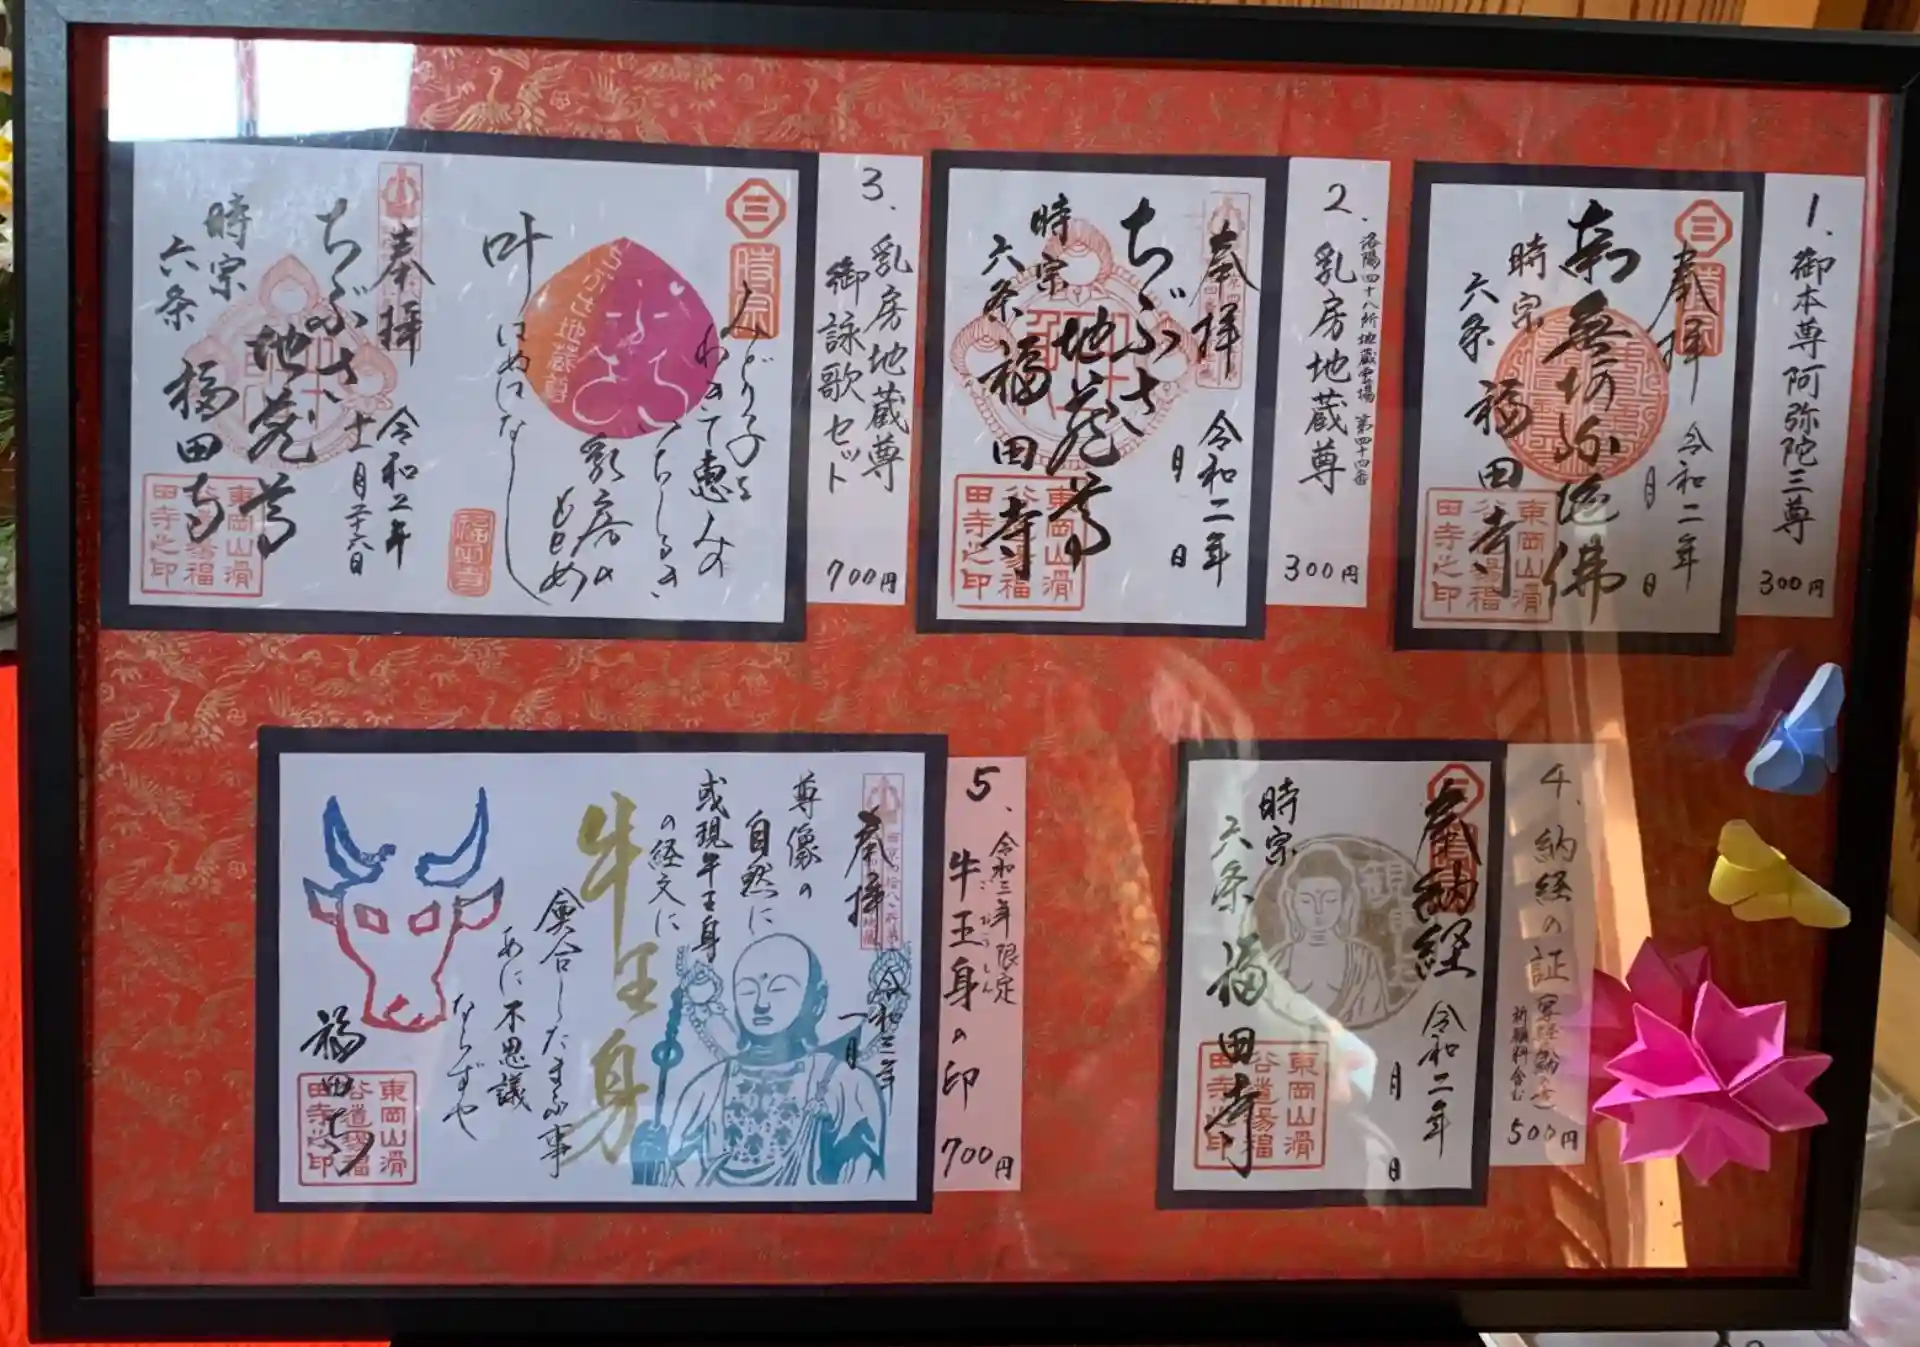 1.
御本尊阿弥陀三尊
300円
奉拝
令和二年
月
日
南無阿弥陀佛
時宗
六条
福田寺
東岡山滑
谷道場福
田寺之印
2.
洛陽四十八所地蔵霊場 第四十四番
乳房地蔵尊
300円
奉拝
令和二年
月
日
ちぶさ
地蔵尊
時宗
六条
福田寺
東岡山滑
谷道場福
田寺之印
3.
乳房地蔵尊
御詠歌セット
700円
三
時宗
みどり子を
わきて恵みの
いちじるき
乳房の
もとめ
はぬはなし
叶
ちぶさ地蔵尊
奉拝
令和二年
十一月二十六日
ちぶさ
地蔵尊
時宗
六条
福田寺
東岡山滑
谷道場福
田寺之印
4.
納経の証
祈願料含む
500円
奉納経
令和二年
月
日
時宗
六条
福田寺
東岡山滑
谷道場福
田寺之印
5.
令和三年限定
牛王身の印
700円
奉拝
令和三年
一月
尊像の
自然に
或現牛王身
の経文に
牛王身
會合したまふ事
あに不思議
ならずや
福田寺
東岡山滑
谷道場福
田寺之印